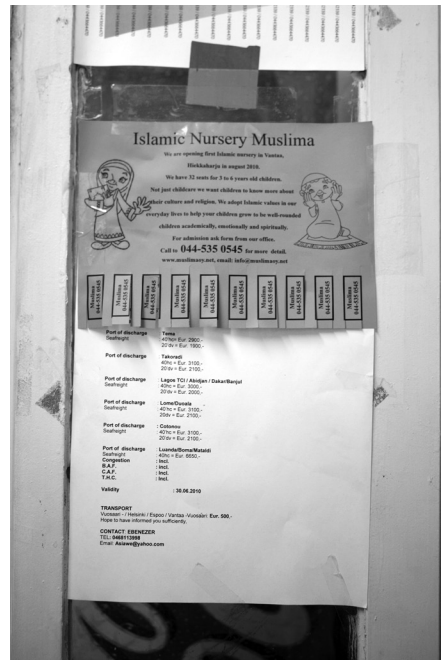 Islamic Nursery Muslima
We are opening first Islamic nursery in Vantaa,
Hiekkaharju in august 2010.
We have 32 seats for 3 to 6 years old children.
Not just childcare we want children to know more about
their culture and religion. We adopt Islamic values in our
everyday lives to help your children grow to be well-rounded
children academically, emotionally and spiritually.
For admission ask form from our office.
Call to 044-535 0545 for more detail.
www.muslimaoy.net, email: info@muslimaoy.net
Muslima
044-535 0545
Muslima
044-535 0545
Muslima
044-535 0545
Muslima
044-535 0545
Muslima
044-535 0545
Muslima
044-535 0545
Muslima
044-535 0545
Muslima
044-535 0545
Muslima
044-535 0545
Muslima
044-535 0545
Port of discharge : Tema
Seafreight 40'hc= Eur. 2900.-
20'dv = Eur. 1900.-
Port of discharge Takoradi
40hc = Eur. 3100,-
20'dv = Eur. 2100,-
Port of discharge Lagos TCI / Abidjan / Dakar/Banjul
Seafreight 40hc = Eur. 3000,-
20'dv = Eur. 2000,-
Port of discharge Lome/Duoala
Seafreight 40'hc = Eur. 3100,-
20dv = Eur. 2100,-
Port of discharge : Cotonou
Seafreight 40'hc = Eur. 3100,-
20'dv = Eur. 2100,-
Port of discharge : Luanda/Boma/Mataldi
Seafreight : 40hc = Eur. 6650,-
Congestion : Incl.
B.A.F. : Incl.
C.A.F. : Incl.
T.H.C. : Incl.
Validity : 30.06.2010
TRANSPORT
Vuosaari - / Helsinki / Espoo / Vantaa -Vuosaari: Eur. 500,-
Hope to have informed you sufficiently,
CONTACT: EBENEZER
TEL: 0468113998
Email: Asiawe@yahoo.com